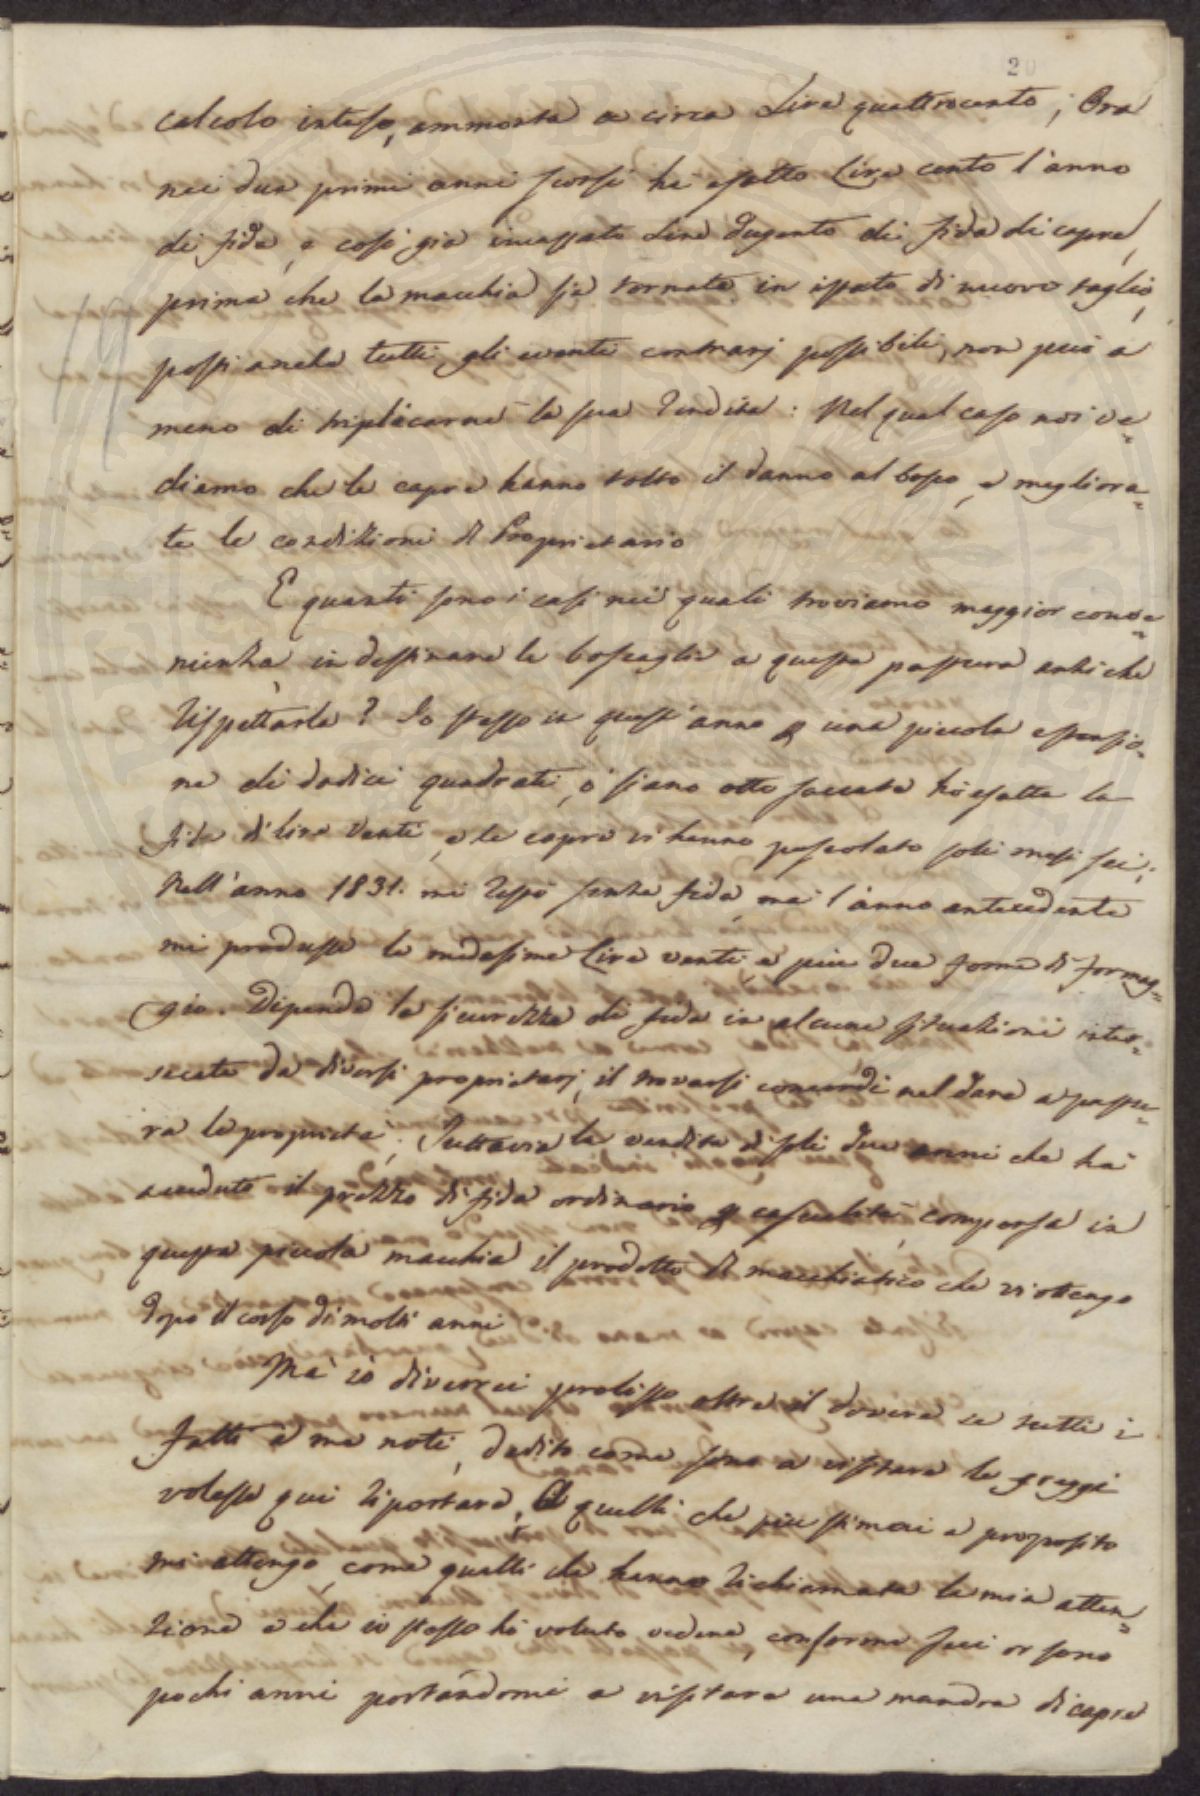 20
calcolo inteso, ammonta a circa Lire quattrocento; Ora
nei due primi anni scorsi hò esatto Lire cento l'anno
di fida, e così già incassato Lire dugento di fida di capre,
prima che la macchia sia tornata in istato di nuovo taglio,
posti anche tutti gli eventi contrarj possibili, non può a
meno di triplicarne la sua rendita: Nel qual caso noi ve=
diamo che le capre hanno tolto il danno al bosco, e migliora=
te le condizioni del Proprietario
E quanti sono i casi nei quali troviamo maggior conve=
nienza in destinare le boscaglie a questa pastura anzi che
rispettarle? Io stesso in quest'anno per una piccola estensio=
ne di dodici quadrati, o siano otto saccate hò esatta la
fida di lire venti, e le capre vi hanno pascolato soli mesi sei;
Nell'anno 1831. mi restò senza fida, ma l'anno antecedente
mi produsse le medesime Lire venti e più due forme di formag=
gio. Dipende la sicurezza di fida in alcune situazioni inter=
secate da diversi proprietarj, il trovarsi concordi nel dare a pastu=
ra le proprietà; Tuttavia la vendita di soli due anni che hà
acceduto il prezzo di fida ordinario per casualità, compensa in
questa piccola macchia il prodotto del macchiatico che vi ottengo
dopo il corso di molti anni
Mà io diverrei prolisso oltre il dovere se tutti i
fatti a me noti, dedito come sono a visitare le greggi
volesse qui riportare, A quelli che più stimai a proposito
mi attengo, come quelli che hanno richiamata la mia atten=
zione e che io stesso hò voluto vedere, conforme feci or sono
pochi anni portandomi a visitare una mandra di capre